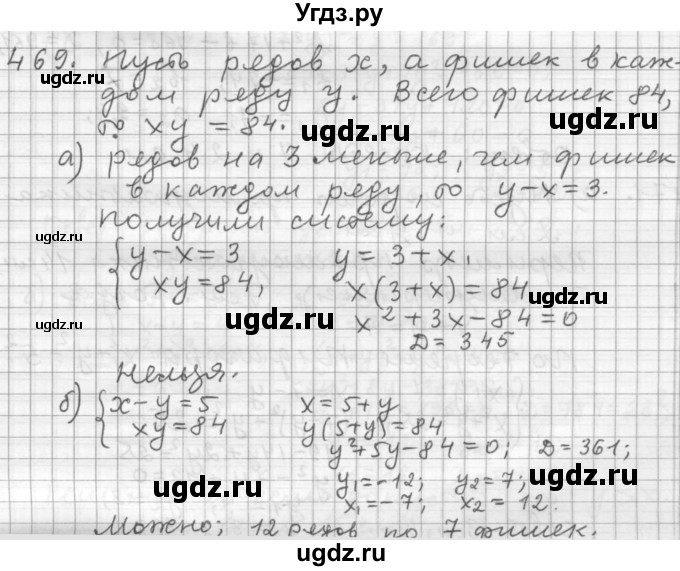 Угдз.ру
469. Пусть рядов x, а фишек в каж-
дом ряду y. Всего фишек 84,
то xy = 84.
ugdz.ru ugdz.ru
а) рядов на 3 меньше, чем фишек
в каждом ряду, то y - x = 3.
Получили систему:
ugdz.ru
{ y - x = 3 y = 3 + x,
xy = 84, x(3 + x) = 84
x² + 3x - 84 = 0
ugdz.ru ugdz.ru ugdz.ru
D = 345
Нельзя.
б) { x - y = 5 x = 5 + y
xy = 84 y(5 + y) = 84
y² + 5y - 84 = 0; D = 361;
y₁ = -12; y₂ = 7;
x₁ = -7; x₂ = 12.
ugdz.ru ugdz.ru
Можно; 12 рядов по 7 фишек.
ugdz.ru ugdz.ru